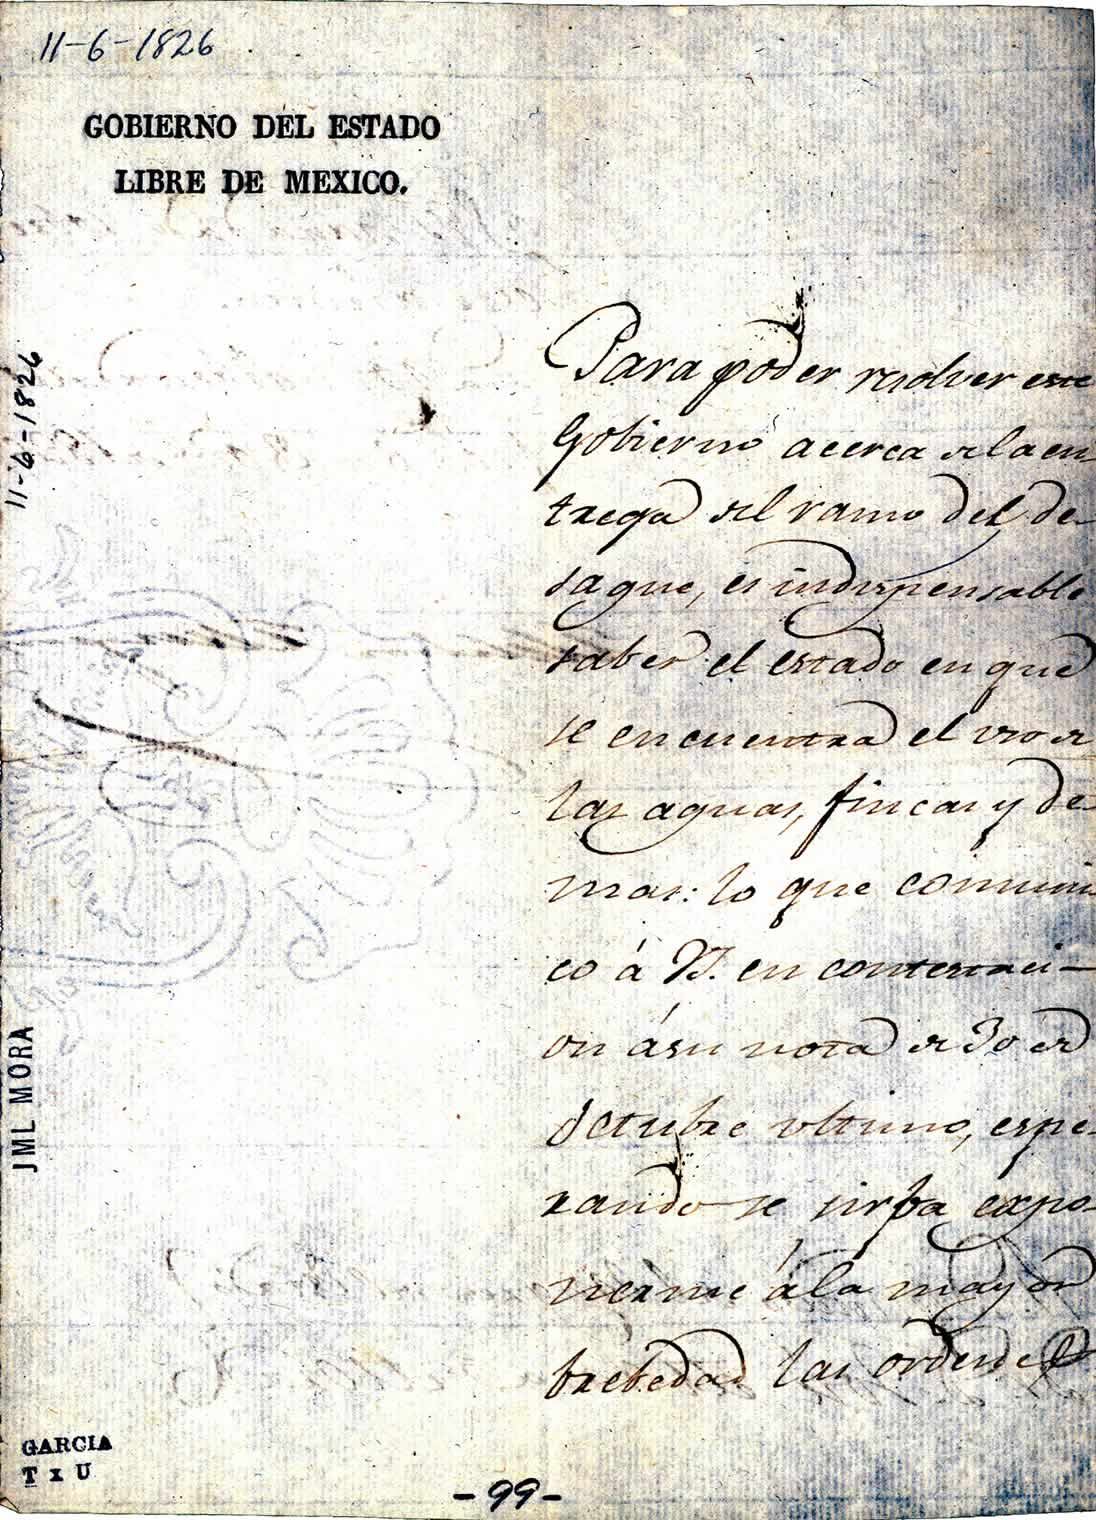 11-6-1826
GOBIERNO DEL ESTADO
LIBRE DE MEXICO.
11-6-1826
Para poder resolver este
Gobierno acerca de la en-
trega del ramo del de-
sague, es indispensable
saber el estado en que
se encuentra el uso de
las aguas, fincas y de
mas: lo que comuni
co á VS. en contestaci-
on á su nota de 30 de
Octubre ultimo, espe-
rando se sirba expo-
nerme á la mayor
brebedad las ordenes
JML MORA
GARCIA
T x U
- 99 -